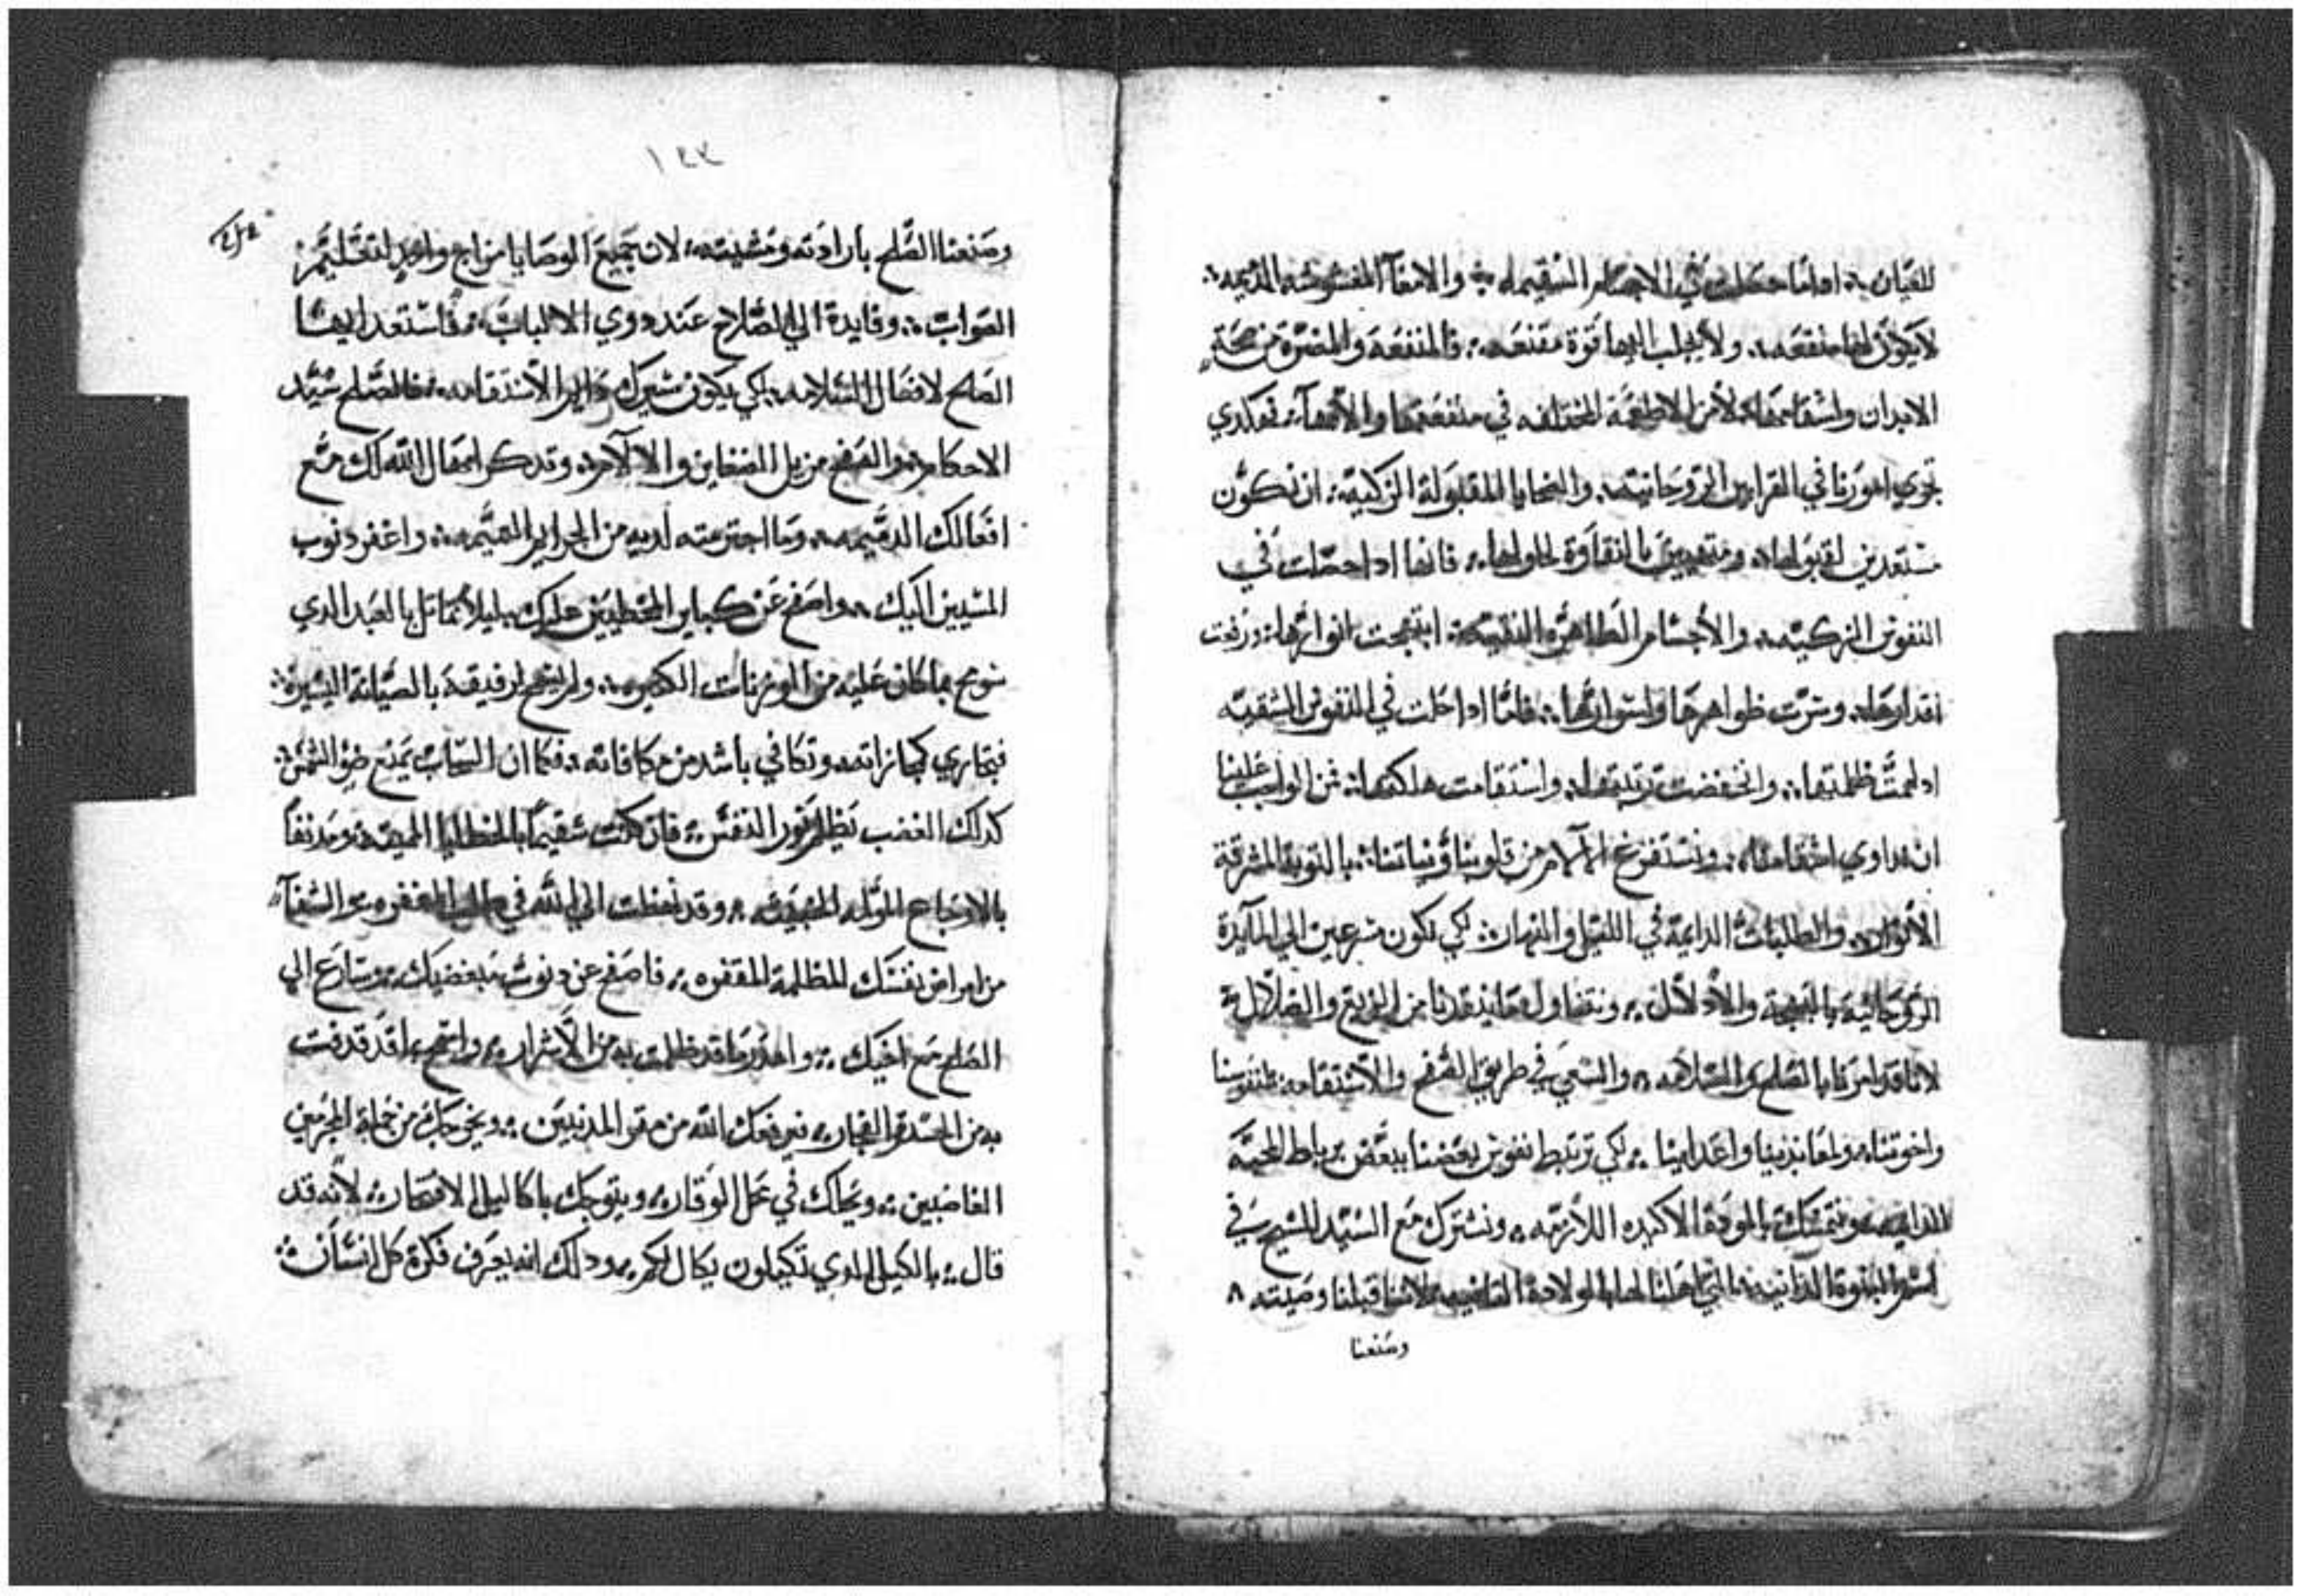 للعيان اداما حصلت في الاجسام السقيمه والامعآ المغشوشه
لايكون لها منفعه ولا يجلب اليها قوة مقنعه فالمنفعه والمضرة من صحة
الابدان واسقامها لا من الاطعمة المختلفه في منفعتها والامعآ فهكدي
تجري امورنا في القرابين الروحانيه والضحايا المقبولة الزكية ان نكون
مستعدين لقبولها ومتهيين بالنقاوة لحلولها فانها ادا حصلت في
النفوس الزكيه والاجسام الطاهره النقيه ابتهجت انوارها ورفعت
اقدارها وسرت ظواهرها واسرارها فاما ادا دخلت في النفوس الشقيه
ادلهمت ظلمتها وانخفضت رتبتها واستقامت هلكتها فمن الواجب علينا
ان نداوي اسقامنا ونستفرغ الآلام من قلوبنا ونياتنا بالتوبة المشرقة
الانوار والطلبات الدايمة في الليل والنهار لكي نكون مسرعين الي المآيدة
الروحانية بالبهجة والادلال من الزيغ والضلال
لاننا قد امرنا بالصلح والسلامه والسعي في طريق الصفح والاستقامه لنفوسنا
واخوتنا ولمعاندينا واعداينا لكي ترتبط نفوس بعضنا ببعض برباط المحبة
ونتمسك بالمودة الاكيده اللازمه ونشترك مع السيد المسيح في
اسم البنوة التي اهلنا لها بالولادة لاننا قبلنا وصيته
وصنعنا
١٢٣
وصنعنا الصلح بارادته ومشيته لان جميع الوصايا من اجع واحد
الصواب وقايدة الي الصلاح عند دوي الالباب فاستعد ايها
الصلح لافضال السلامه لكي يكون الاستقامه فالصلح سيد
الاحكام والصفح مزيل الضغاين والالآم وتدكر امهال الله لك مع
افعالك الدميمه وما اجترمته لديه من الجراير واغفر دنوب
المسيين اليك واصفح عن كباير المخطيين عليك ليلا تماثل بالعبد الدي
سومح بما كان عليه من الوزنات الكثيره ولم يسمح لرفيقه بالصبابة اليسيرة
فتجاري كمجازاته وتكافي باشد من مكافاته فكما ان السحاب يمنع ضو الشمس
كدلك الغضب يظلم نور النفس فان كنت سقيما بالخطايا المميته ومدنفا
بالاوجاع المؤلمه الخبيثه وقد نهضت الي الله في طلب المغفره والشفآ
من امراض نفسك المظلمة المقفره فاصفح عن دنوب مبغضيك وسارع الي
الصلح مع اخيك واغفر ما قد ظلمت به من الاشرار واسمح لما قد قدفت
به من الحسدة الفجار فيرفعك الله من مقر المدنبين ويخرجك من جملة المجرمين
الغاضبين ويحلك في محل الوقار ويتوجك باكاليل الافتخار لانه قد
قال بالكيل الدي تكيلون يكال لكم ودلك انه يعرف فكرة كل انسان